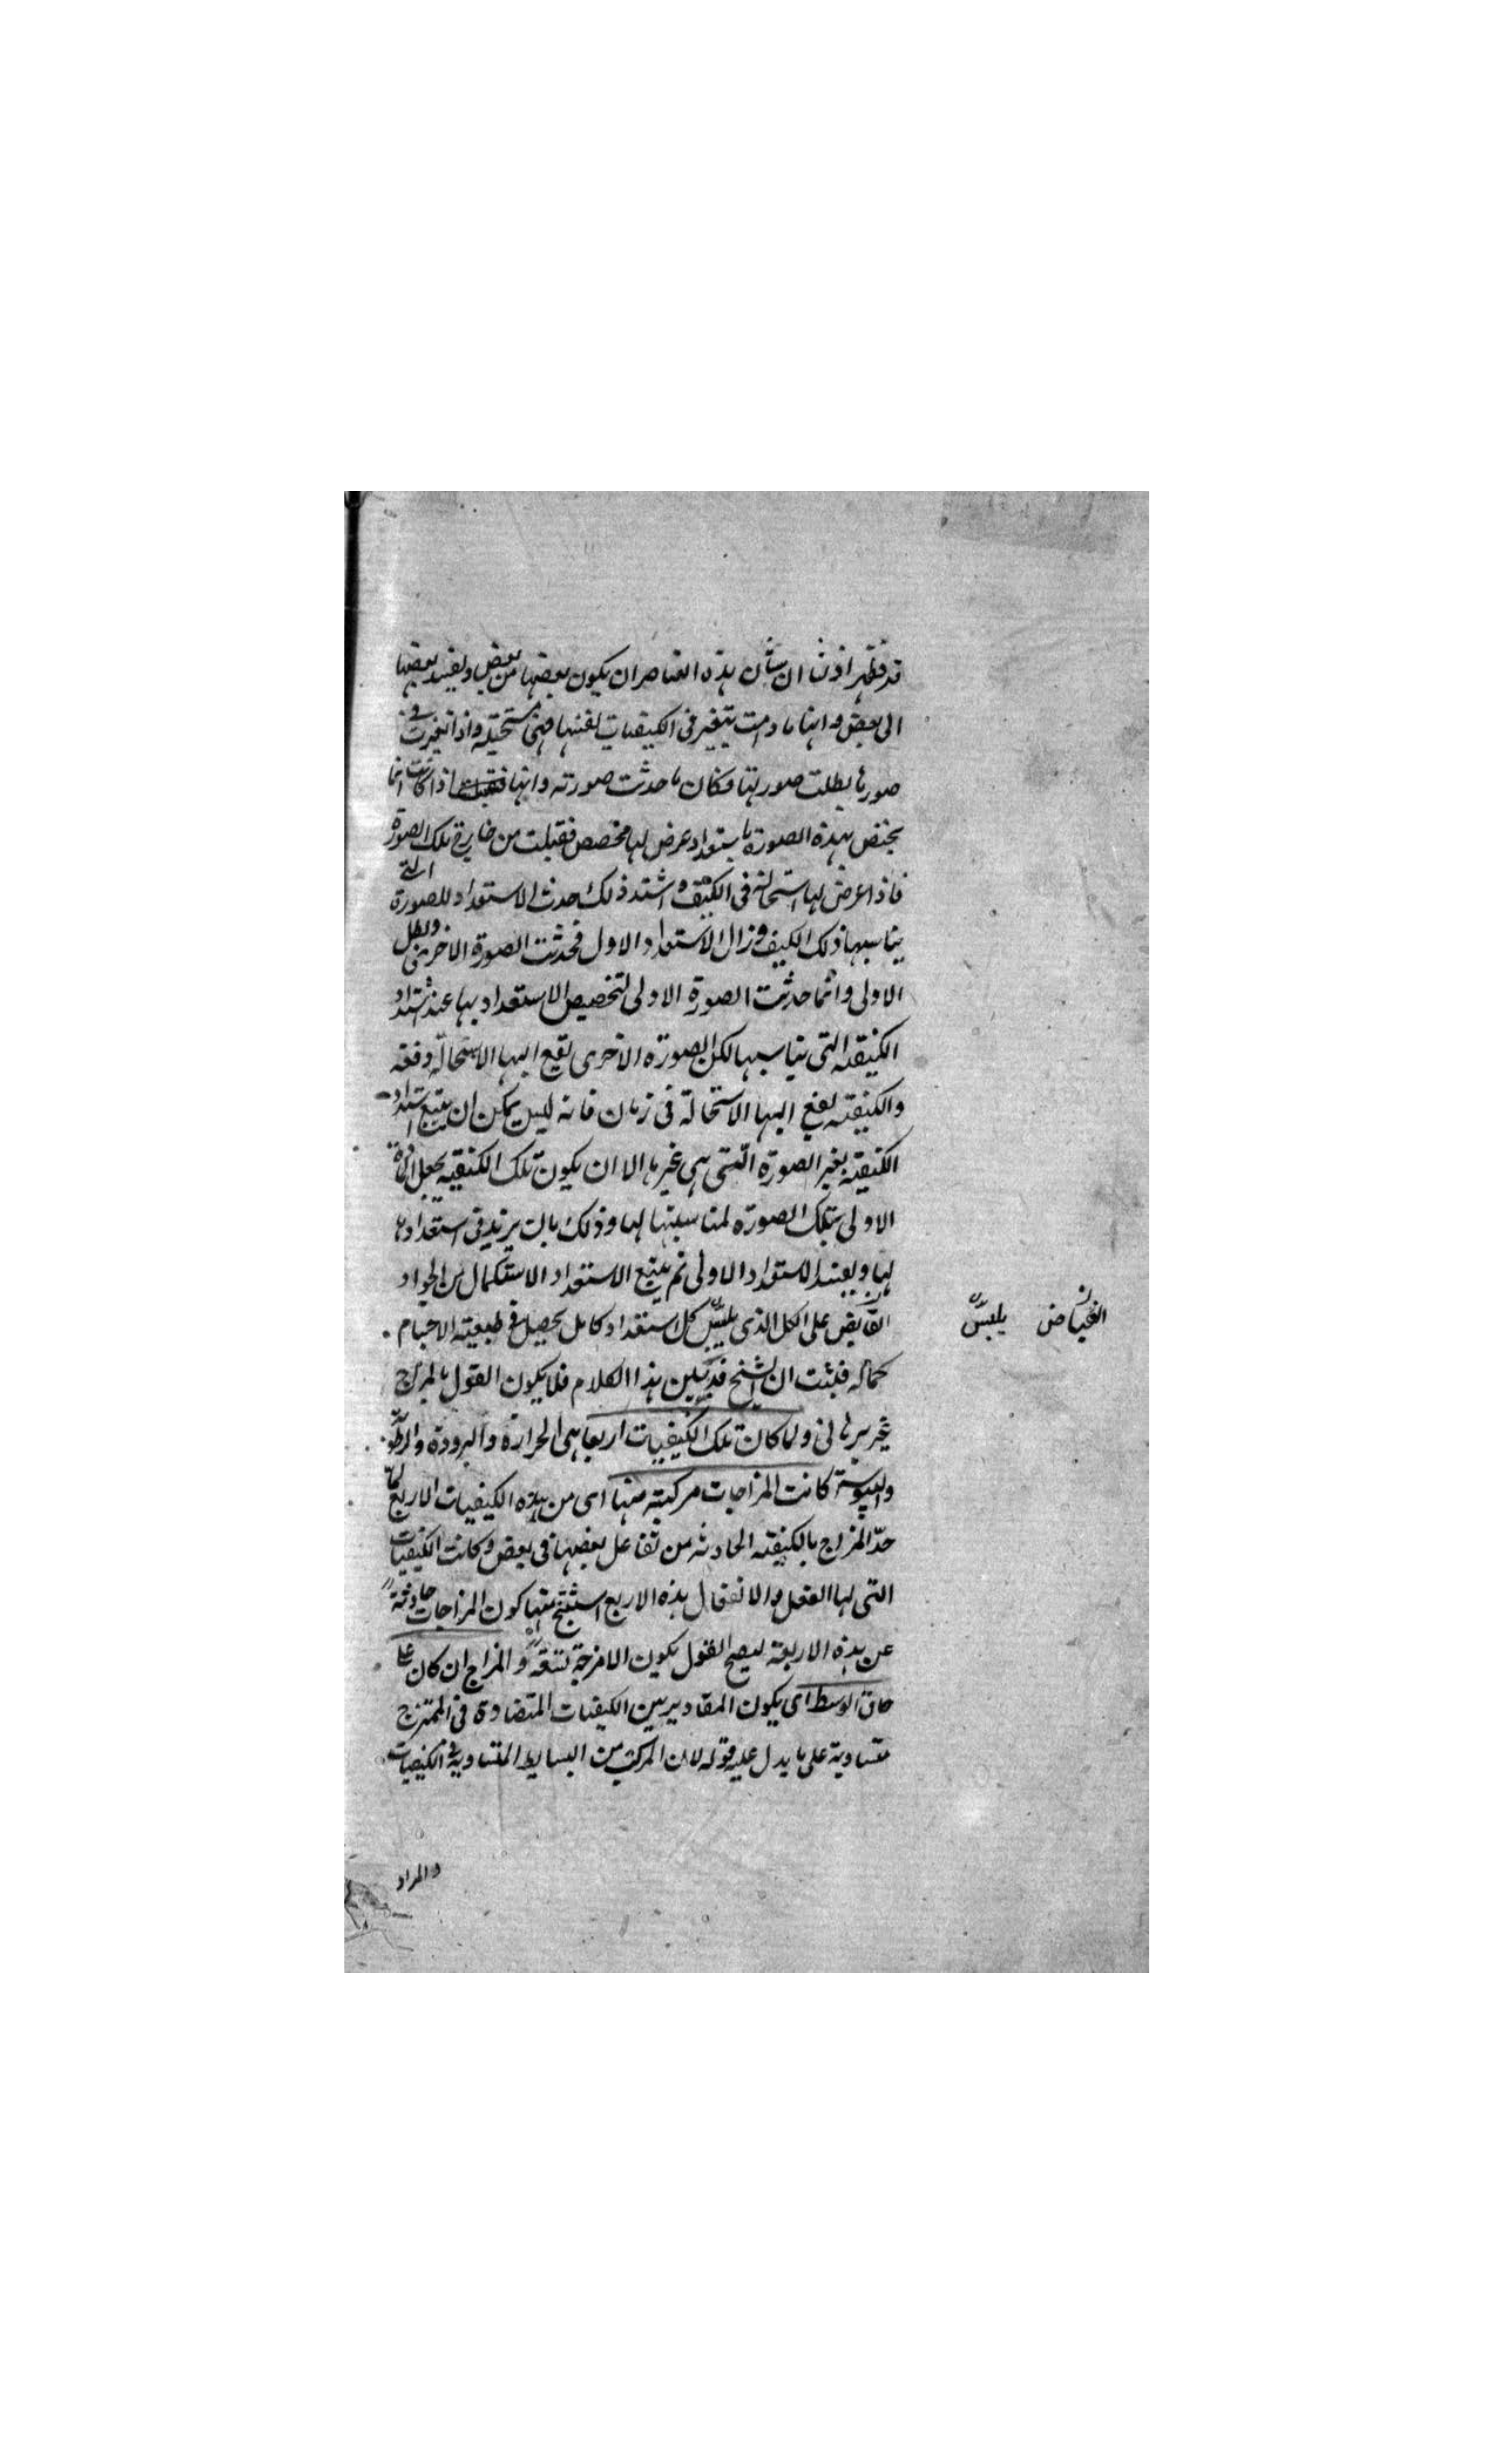 قد ظهر اذن ان شان هذه العناصر ان يكون بعضها من بعض ويفسد بعضها
الى بعض وانها ما دامت يتغير فى الكيفيات لفنها فهى مستحيلة واذا تغيرت فى
صورها بطلت صورتها وكان ما حدثت صورته وانها اذا كانت انما
يختص بهذه الصورة باستعداد عرض لها مخصص فقبلت من خارج تلك الصورة
فاذا عرض لها استحالة فى الكيف واشتد ذلك حدث الاستعداد للصورة التى
يناسبها ذلك الكيف وزال الاستعداد الاول فحدثت الصورة الاخرى وبطل
الاولى وانما حدثت الصورة الاولى لتخصيص الاستعداد بها عند اشتداد
الكيفية التى يناسبها لكن الصورة الاخرى تقع اليها الاستحالة دفعة
والكيفية يقع اليها الاستحالة فى زمان فانه ليس يمكن ان يتبع اشتداد
الكيفية بغير الصورة التى هى غيرها الا ان يكون تلك الكيفية يجعل المادة
الاولى بتلك الصورة لمناسبتها لها وذلك بان يزيد فى استعدادها
لها ويفسد الاستعداد الاولى ثم يتبع الاستعداد الاستكمال من الجواد
الفايض على الكل الذى يلبس كل استعداد كامل يحصل فى طبيعة الاجسام
كماله فثبت ان الشيخ قد بين هذا الكلام فلا يكون القول بالمزاج
غير برهانى ولما كانت تلك الكيفيات اربعا هى الحرارة والبرودة والرطوبة
واليبوسة كانت المزاجات مركبة منها اى من هذه الكيفيات الاربع لما
حد المزاج بالكيفية الحادثة من تفاعل بعضها فى بعض وكانت الكيفيات
التى لها الفعل والانفعال هذه الاربع استنتج منها كون المزاجات حادثة
عن هذه الاربعة ليصح القول بكون الامزجة تسعة والمزاج ان كان على
حاق الوسط اى يكون المقادير بين الكيفيات المتضادة فى الممتزج
متساوية على ما يدل عليه قوله لان المركب من البسايط المتساوية فى الكيفيات
الفياض يلبس
والمراد